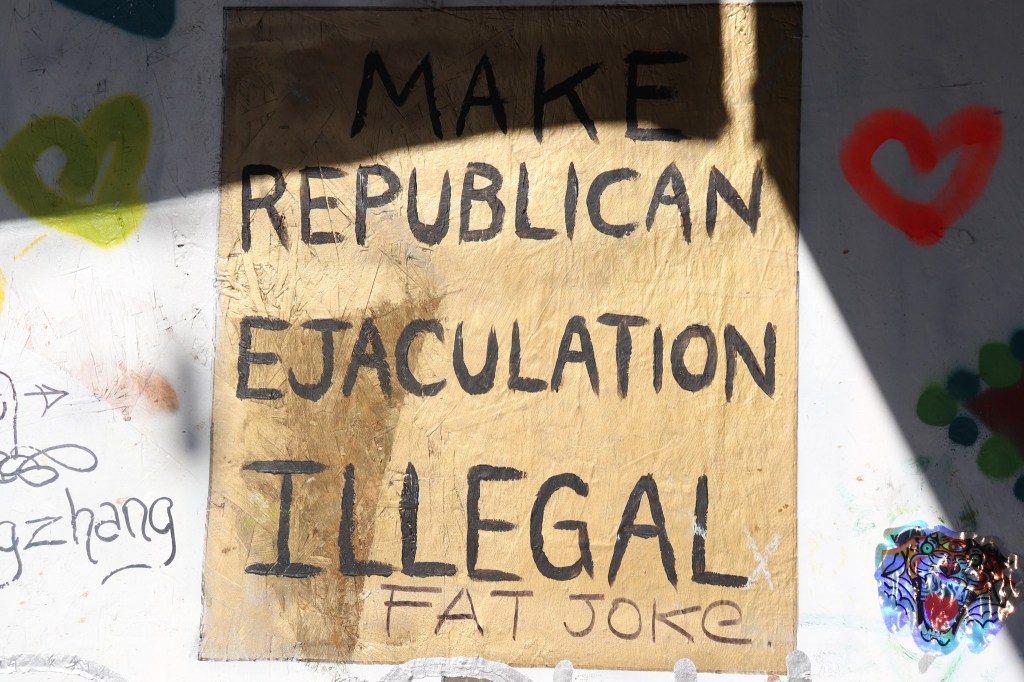 MAKE
REPUBLICAN
EJACULATION
ILLEGAL
FAT JOKE.
gzhang